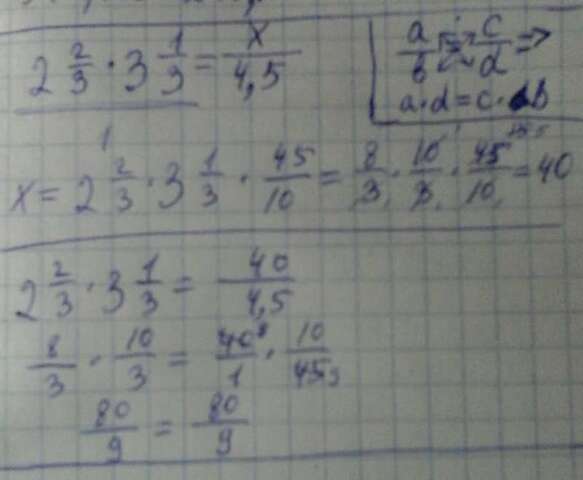 2 2/3 · 3 1/3 = x/4,5
a/b = c/d =>
a·d = c·b
x = 2 2/3 · 3 1/3 · 45/10 = 8/3 · 10/3 · 45/10 = 40
2 2/3 · 3 1/3 = 40/4,5
8/3 · 10/3 = 40/1 · 10/45
80/9 = 80/9